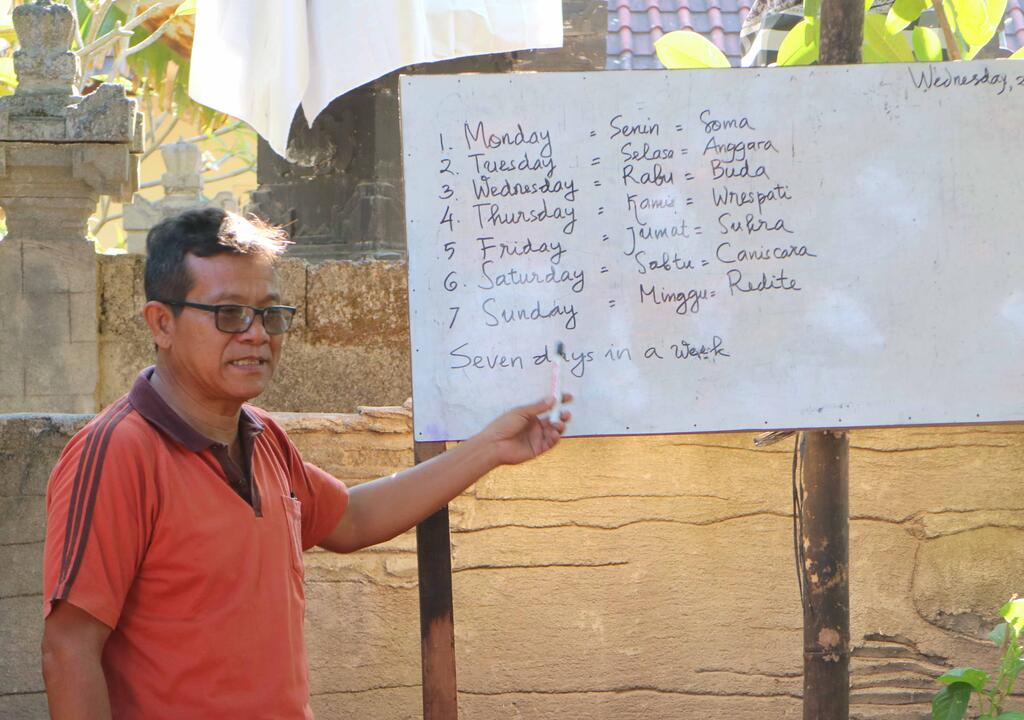 Wednesday, 2
1. Monday = Senin = Soma
2. Tuesday = Selasa = Anggara
3. Wednesday = Rabu = Buda
4. Thursday = Kamis = Wrespati
5 Friday = Jumat = Sukra
6. Saturday = Sabtu = Caniscara
7 Sunday = Minggu = Redite
Seven days in a week